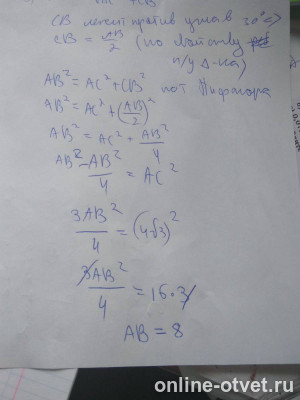 AC + CB
CB лежит против угла в 30° =>
CB = AB/2 (по свойству
п/у Δ-ка)
AB² = AC² + CB² по т Пифагора
AB² = AC² + (AB/2)²
AB² = AC² + AB²/4
AB² - AB²/4 = AC²
3AB²/4 = (4√3)²
3AB²/4 = 16·3
AB = 8
online-otvet.ru